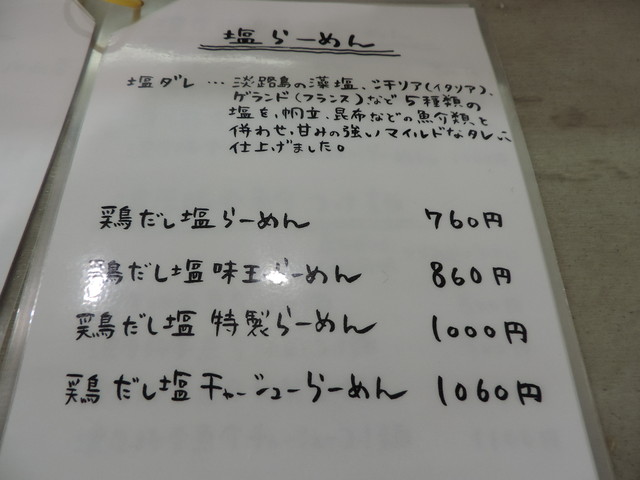 塩らーめん
塩ダレ … 淡路島の藻塩、シチリア(イタリア)、
ゲランド(フランス)など5種類の
塩を、帆立、昆布などの魚介類と
併わせ、甘みの強いマイルドなタレに
仕上げました。
鶏だし塩らーめん 760円
鶏だし塩味玉らーめん 860円
鶏だし塩 特製らーめん 1000円
鶏だし塩チャーシューらーめん 1060円